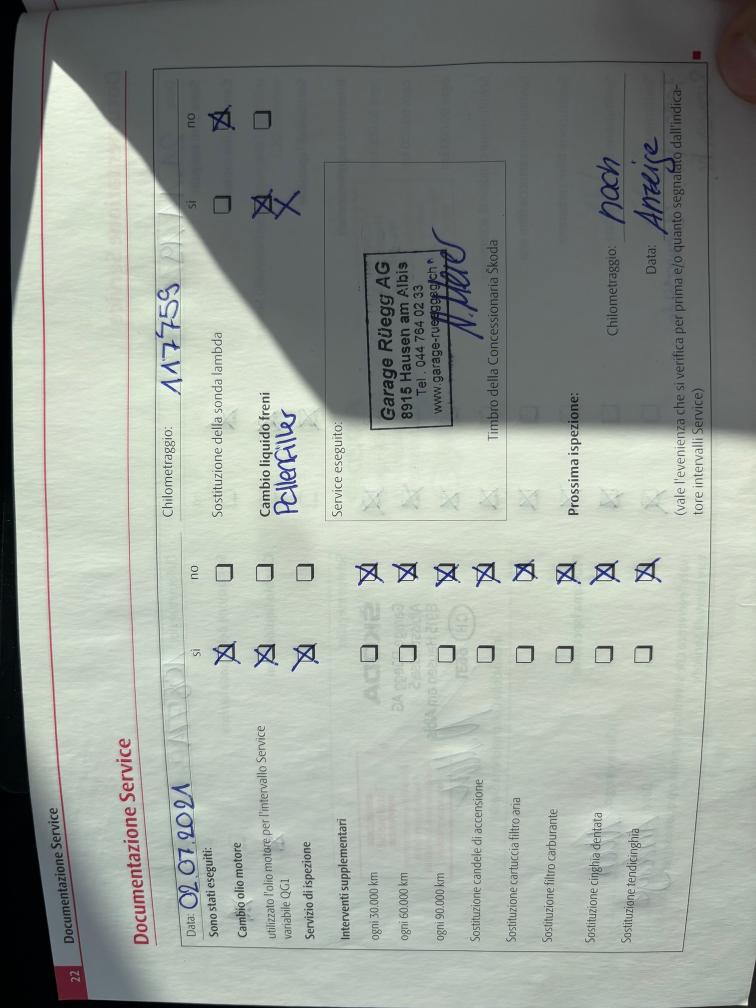 22
Documentazione Service
Documentazione Service
Data: 02.07.2021
Chilometraggio: 117759
Sono stati eseguiti:
sì no
Cambio olio motore
utilizzato l'olio motore per l'intervallo Service
variabile QG1
Servizio di ispezione
Interventi supplementari
ogni 30.000 km
ogni 60.000 km
ogni 90.000 km
Sostituzione candele di accensione
Sostituzione cartuccia filtro aria
Sostituzione filtro carburante
Sostituzione cinghia dentata
Sostituzione tendicinghia
sì no
Sostituzione della sonda lambda
Cambio liquido freni
Pollenfilter
Service eseguito:
Garage Rüegg AG
8915 Hausen am Albis
Tel. 044 764 02 33
Timbro della Concessionaria Škoda
Prossima ispezione:
Chilometraggio: nach
Data: Anzeige
(vale l'evenienza che si verifica per prima e/o quanto segnalato dall'indica-
tore intervalli Service)